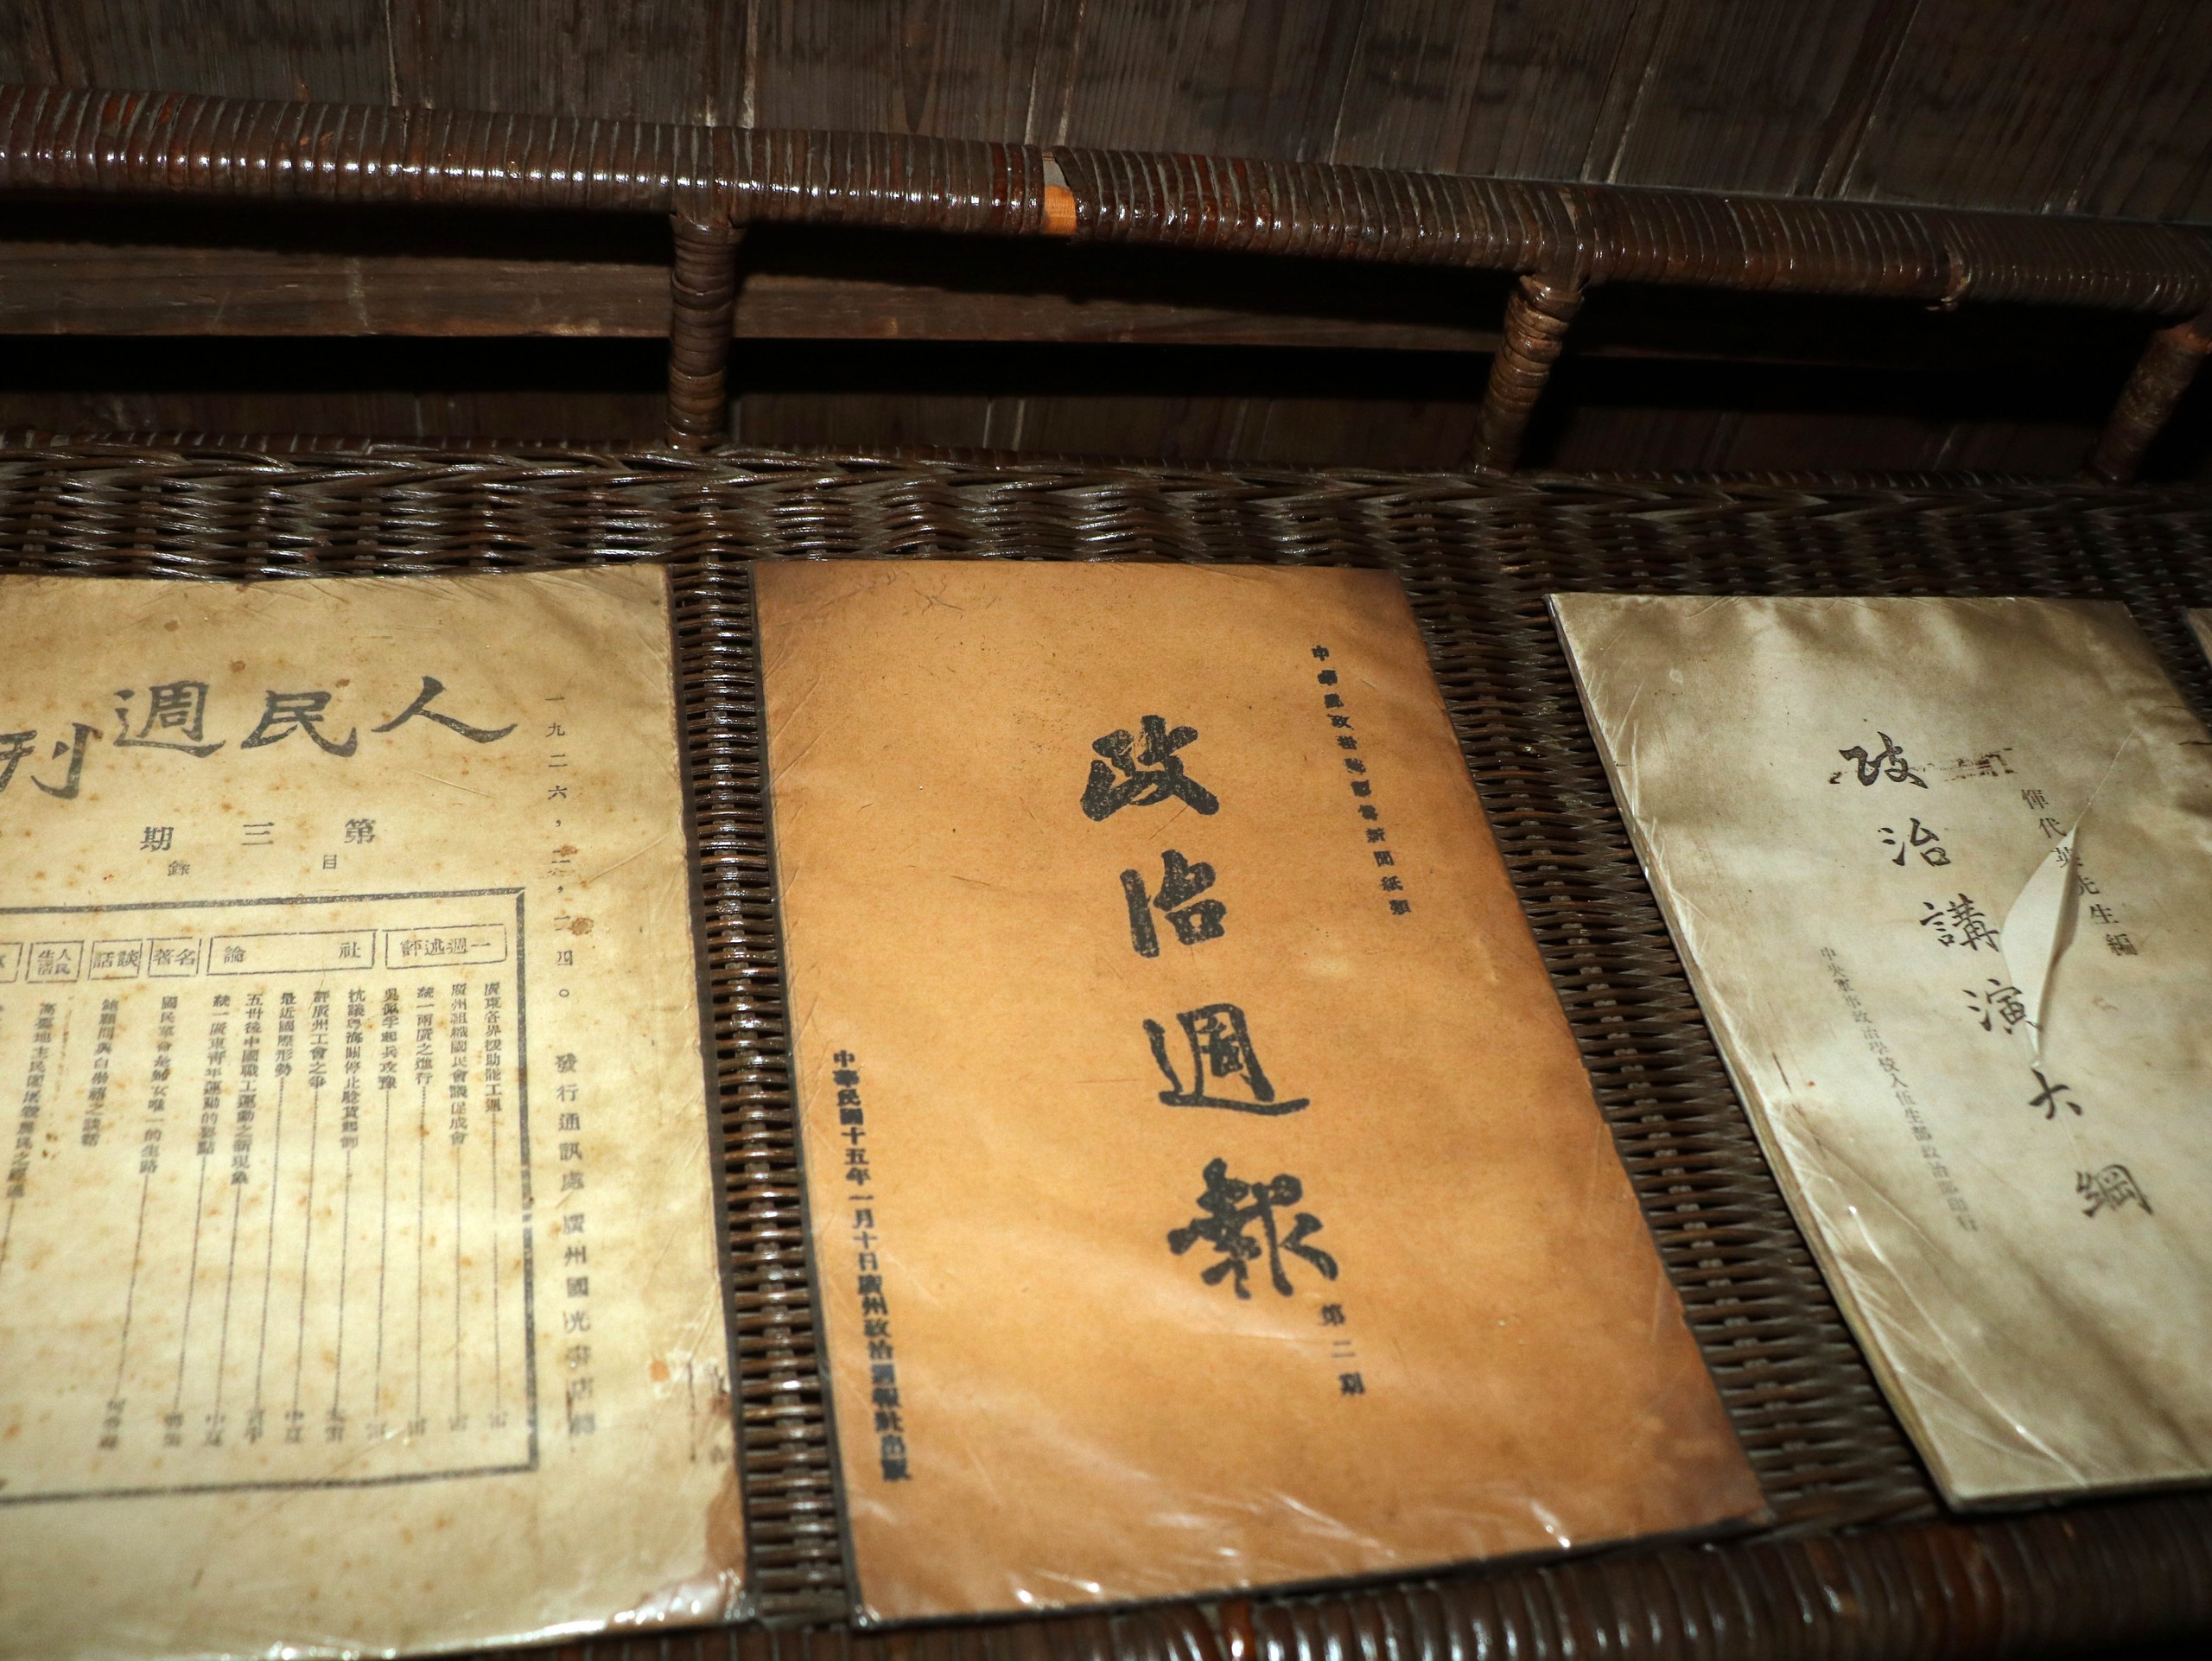 人民週刊
第三期
目錄
一九二六，二，二四。
發行通訊處 廣州國光書店轉
一週述評
社論
名著
談話
人民生活
廣東各界援助罷工週
廣州組織國民會議促成會
統一兩廣之進行
吳佩孚起兵攻豫
抗議粵海關停止驗貨起卸
評廣州工會之爭
最近國際形勢
五卅後中國職工運動之新現象
統一廣東青年運動的要點
國民革命是婦女唯一的生路
中華郵政掛號認為新聞紙類
政治週報
第二期
中華民國十五年一月十日廣州政治週報社出版
惲代英先生編
政治講演大綱
中央軍事政治學校入伍生部政治部印行